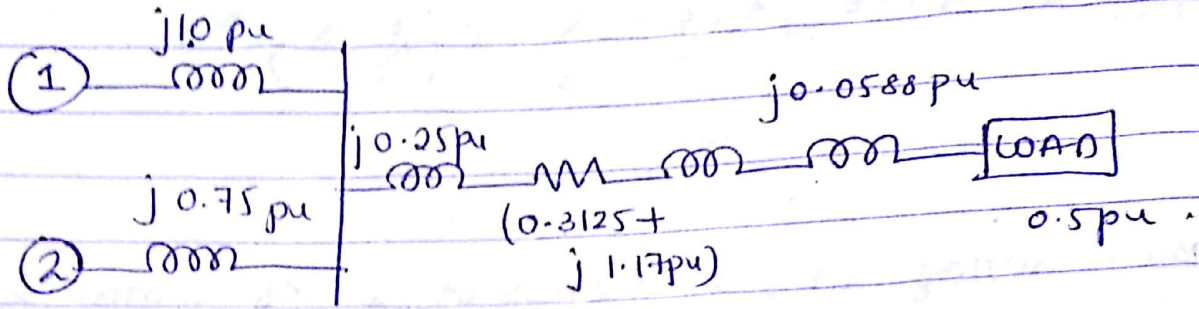 j1.0 pu
1
j0.0588 pu
j0.25pu
LOAD
j 0.75 pu
(0.3125 +
j 1.17pu)
0.5pu .
2